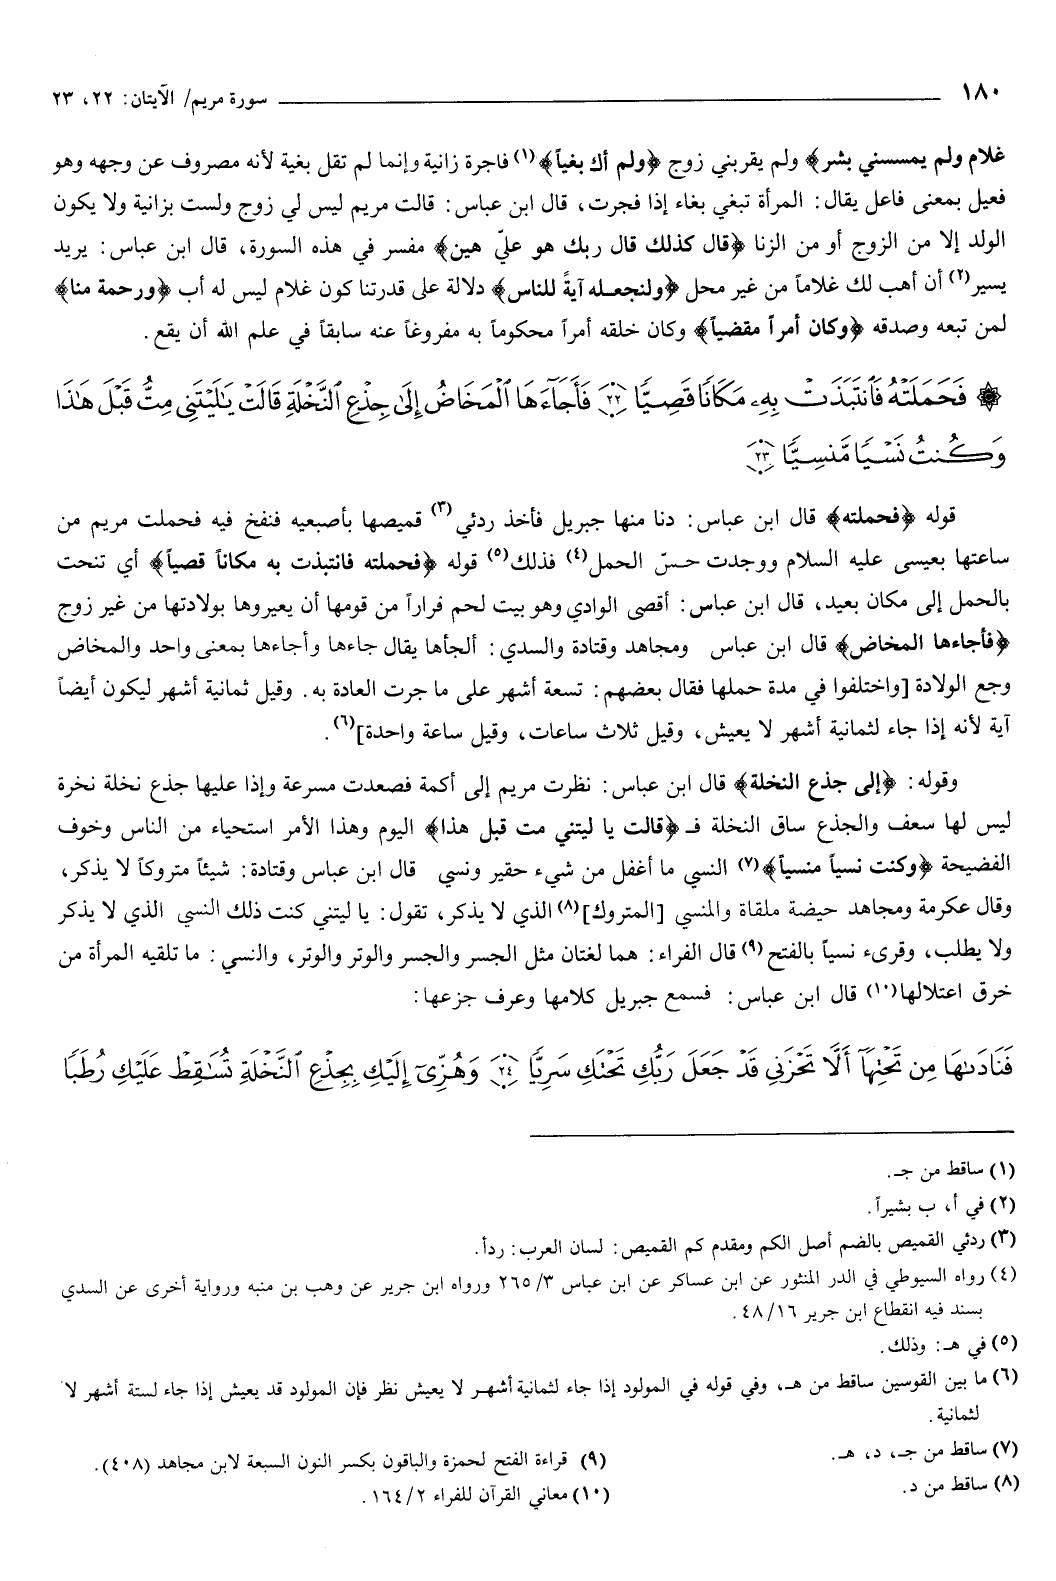 ١٨٠ سورة مريم/ الآيتان: ٢٢، ٢٣
غلام ولم يمسسني بشر﴾ ولم يقربني زوج ﴿ولم أك بغياً﴾(١) فاجرة زانية وإنما لم تقل بغية لأنه مصروف عن وجهه وهو
فعيل بمعنى فاعل يقال: المرأة تبغي بغاء إذا فجرت، قال ابن عباس: قالت مريم ليس لي زوج ولست بزانية ولا يكون
الولد إلا من الزوج أو من الزنا ﴿قال كذلك قال ربك هو عليّ هين﴾ مفسر في هذه السورة، قال ابن عباس: يريد
يسير(٢) أن أهب لك غلاماً من غير محل ﴿ولنجعله آيةً للناس﴾ دلالة على قدرتنا كون غلام ليس له أب ﴿ورحمة منا﴾
لمن تبعه وصدقه ﴿وكان أمراً مقضياً﴾ وكان خلقه أمراً محكوماً به مفروغاً عنه سابقاً في علم الله أن يقع.
۞ فَحَمَلَتْهُ فَٱنتَبَذَتْ بِهِۦ مَكَانًا قَصِيًّا ٢٢ فَأَجَآءَهَا ٱلْمَخَاضُ إِلَىٰ جِذْعِ ٱلنَّخْلَةِ قَالَتْ يَٰلَيْتَنِى مِتُّ قَبْلَ هَٰذَا
وَكُنتُ نَسْيًا مَّنسِيًّا ٢٣
قوله ﴿فحملته﴾ قال ابن عباس: دنا منها جبريل فأخذ ردئي(٣) قميصها بأصبعيه فنفخ فيه فحملت مريم من
ساعتها بعيسى عليه السلام ووجدت حسّ الحمل(٤) فذلك(٥) قوله ﴿فحملته فانتبذت به مكاناً قصياً﴾ أي تنحت
بالحمل إلى مكان بعيد، قال ابن عباس: أقصى الوادي وهو بيت لحم فراراً من قومها أن يعيروها بولادتها من غير زوج
﴿فأجاءها المخاض﴾ قال ابن عباس ومجاهد وقتادة والسدي: ألجأها يقال جاءها وأجاءها بمعنى واحد والمخاض
وجع الولادة [واختلفوا في مدة حملها فقال بعضهم: تسعة أشهر على ما جرت العادة به. وقيل ثمانية أشهر ليكون أيضاً
آية لأنه إذا جاء لثمانية أشهر لا يعيش، وقيل ثلاث ساعات، وقيل ساعة واحدة](٦).
وقوله: ﴿إلى جذع النخلة﴾ قال ابن عباس: نظرت مريم إلى أكمة فصعدت مسرعة وإذا عليها جذع نخلة نخرة
ليس لها سعف والجذع ساق النخلة فـ ﴿قالت يا ليتني مت قبل هذا﴾ اليوم وهذا الأمر استحياء من الناس وخوف
الفضيحة ﴿وكنت نسياً منسياً﴾(٧) النسي ما أغفل من شيء حقير ونسي قال ابن عباس وقتادة: شيئاً متروكاً لا يذكر،
وقال عكرمة ومجاهد حيضة ملقاة والمنسي [المتروك](٨) الذي لا يذكر، تقول: يا ليتني كنت ذلك النسي الذي لا يذكر
ولا يطلب، وقرىء نسياً بالفتح(٩) قال الفراء: هما لغتان مثل الجسر والجسر والوتر والوتر، والنسي: ما تلقيه المرأة من
خرق اعتلالها(١٠) قال ابن عباس: فسمع جبريل كلامها وعرف جزعها:
فَنَادَىٰهَا مِن تَحْتِهَآ أَلَّا تَحْزَنِى قَدْ جَعَلَ رَبُّكِ تَحْتَكِ سَرِيًّا ٢٤ وَهُزِّىٓ إِلَيْكِ بِجِذْعِ ٱلنَّخْلَةِ تُسَٰقِطْ عَلَيْكِ رُطَبًا
(١) ساقط من جـ.
(٢) في أ، ب بشيراً.
(٣) ردئي القميص بالضم أصل الكم ومقدم كم القميص: لسان العرب: ردأ.
(٤) رواه السيوطي في الدر المنثور عن ابن عساكر عن ابن عباس ٣/ ٢٦٥ ورواه ابن جرير عن وهب بن منبه ورواية أخرى عن السدي
بسند فيه انقطاع ابن جرير ٤٨/١٦.
(٥) في هـ: وذلك.
(٦) ما بين القوسين ساقط من هـ، وفي قوله في المولود إذا جاء لثمانية أشهر لا يعيش نظر فإن المولود قد يعيش إذا جاء لستة أشهر لا
لثمانية.
(٧) ساقط من جـ، د، هـ.
(٨) ساقط من د.
(٩) قراءة الفتح لحمزة والباقون بكسر النون السبعة لابن مجاهد (٤٠٨).
(١٠) معاني القرآن للفراء ١٦٤/٢.